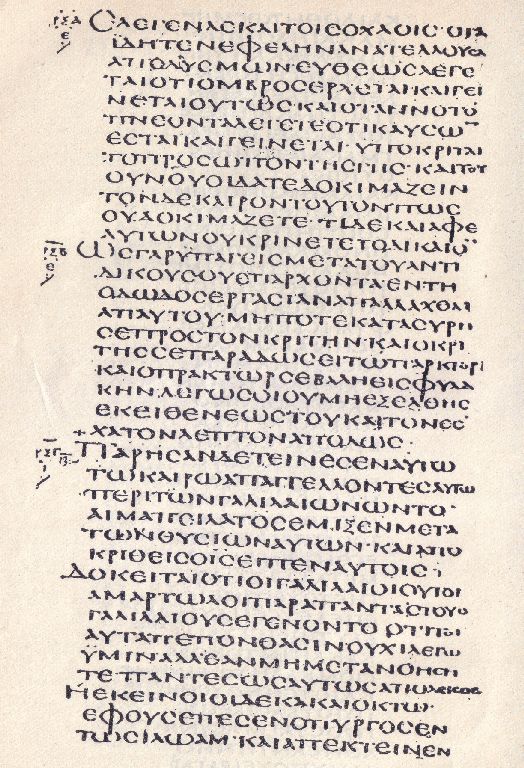 ϹΞΑ
Ε
ΕΛΕΓΕΝΔΕΚΑΙΤΟΙϹΟΧΛΟΙϹ· ΟΤΑ̅
ΪΔΗΤΕΝΕΦΕΛΗΝΑΝΑΤΕΛΛΟΥϹΑ
ΑΠΟΔΥϹΜΩΝ·ΕΥΘΕΩϹΛΕΓΕ
ΤΑΙΟΤΙΟΜΒΡΟϹΕΡΧΕΤΑΙ·ΚΑΙΓΕΙ
ΝΕΤΑΙΟΥΤΩϹ·ΚΑΙΟΤΑΝΝΟΤΟ̅
ΠΝΕΟΝΤΑΛΕΓΕΤΕΟΤΙΚΑΥϹΩ̅
ΕϹΤΑΙΚΑΙΓΕΙΝΕΤΑΙ· ΥΠΟΚΡΙΤΑΙ
ΤΟΠΡΟϹΩΠΟΝΤΗϹΓΗϹ· ΚΑΙΤΟΥ
ΟΥΝΟΥΟΙΔΑΤΕΔΟΚΙΜΑΖΕΙΝ
ΤΟΝΔΕΚΑΙΡΟΝΤΟΥΤΟΝΠΩϹ
ΟΥΔΟΚΙΜΑΖΕΤΕ· ΤΙΔΕΚΑΙΑΦΕ
ΑΥΤΩΝΟΥΚΡΙΝΕΤΕΤΟΔΙΚΑΙΟ̅
ϹΞΒ
Ε
ΩϹΓΑΡΥΠΑΓΕΙϹΜΕΤΑΤΟΥΑΝΤΙ
ΔΙΚΟΥϹΟΥΕΠΑΡΧΟΝΤΑΕΝΤΗ
ΟΔΩΔΟϹΕΡΓΑϹΙΑΝΑΠΑΛΛΑΧΘΑΙ
ΑΠΑΥΤΟΥ·ΜΗΠΟΤΕΚΑΤΑϹΥΡΗ
ϹΕΠΡΟϹΤΟΝΚΡΙΤΗΝ·ΚΑΙΟΚΡΙ
ΤΗϹϹΕΠΑΡΑΔΩϹΕΙΤΩΠΡΑΚΤΟΡΙ
ΚΑΙΟΠΡΑΚΤΩΡϹΕΒΑΛΗΕΙϹΦΥΛΑ
ΚΗΝ·ΛΕΓΩϹΟΙΟΥΜΗΕΞΕΛΘΗϹ
ΕΚΕΙΘΕΝΕΩϹΤΟΥΚΑΙΤΟΝΕϹ
+ΧΑΤΟΝΛΕΠΤΟΝΑΠΟΔΩϹ·
ϹΞΓ
Ι
ΠΑΡΗϹΑΝΔΕΤΕΙΝΕϹΕΝΑΥΤΩ
ΤΩΚΑΙΡΩΑΠΑΓΓΕΛΛΟΝΤΕϹΑΥΤΩ
ΠΕΡΙΤΩΝΓΑΛΙΛΑΙΩΝΩΝΤΟ
ΑΙΜΑΠΕΙΛΑΤΟϹΕΜΙΞΕΝΜΕΤΑ
ΤΩΝΘΥϹΙΩΝΑΥΤΩΝ·ΚΑΙΑΠΟ
ΚΡΙΘΕΙϹΟΙϹΕΙΠΕΝΑΥΤΟΙϹ·
ΔΟΚΕΙΤΑΙΟΤΙΟΙΓΑΛΙΛΑΙΟΙΟΥΤΟΙ
ΑΜΑΡΤΩΛΟΙΠΑΡΑΠΑΝΤΑϹΤΟΥϹ
ΓΑΛΙΛΑΙΟΥϹΕΓΕΝΟΝΤΟΟΤΙΤΟΙ
ΑΥΤΑΠΕΠΟΝΘΑϹΙΝΟΥΧΙΛΕΓΩ
ΫΜΙΝΑΛΛΕΑΝΜΗΜΕΤΑΝΟΗϹΗ
ΤΕΠΑΝΤΕϹΩϹΑΥΤΩϹΑΠΟΛΕΙϹΘΕ
ΗΕΚΕΙΝΟΙΟΙΔΕΚΑΚΑΙΟΚΤΩ·
ΕΦΟΥϹΕΠΕϹΕΝΟΠΥΡΓΟϹΕΝ
ΤΩϹΙΛΩΑΜ·ΚΑΙΑΠΕΚΤΕΙΝΕΝ